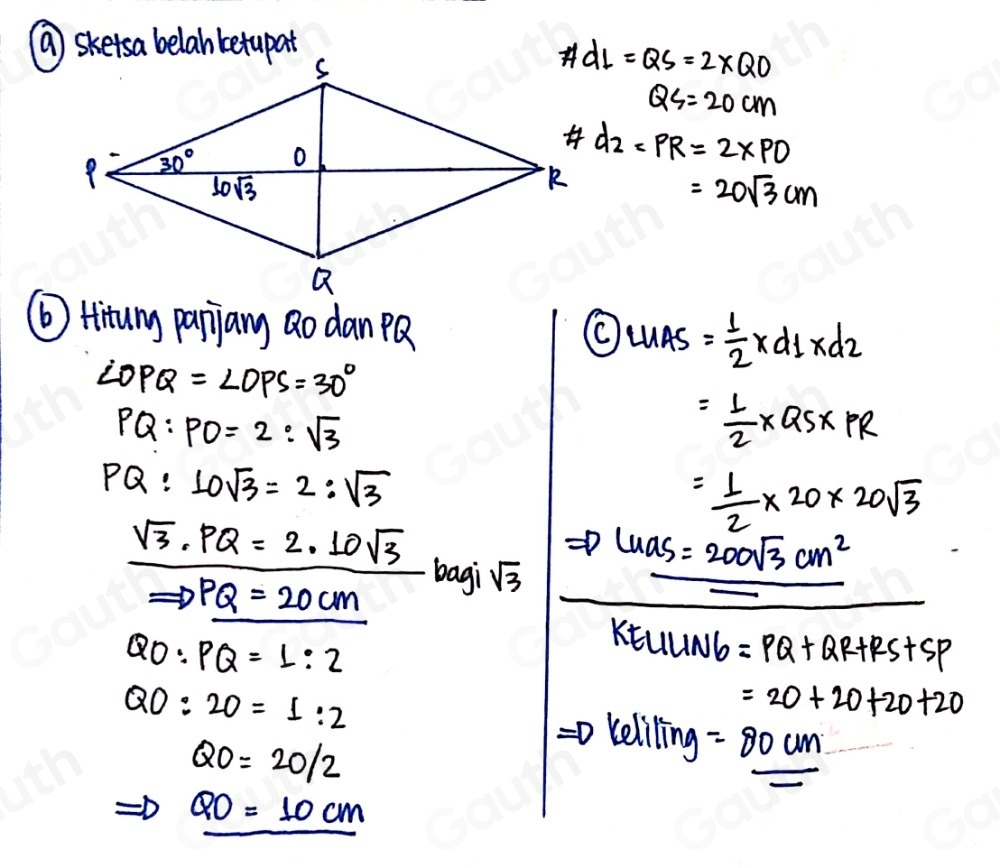 ⓐ Sketsa belah ketupat
S
P 30° O R
10√3
Q
# d1 = QS = 2 x QO
QS = 20 cm
# d2 = PR = 2 x PO
= 20√3 cm
ⓑ Hitung panjang QO dan PQ
∠OPQ = ∠OPS = 30°
PQ : PO = 2 : √3
PQ : 10√3 = 2 : √3
√3 . PQ = 2 . 10√3
bagi √3
⇒ PQ = 20 cm
QO : PQ = 1 : 2
QO : 20 = 1 : 2
QO = 20/2
⇒ QO = 10 cm
ⓒ LUAS = 1/2 x d1 x d2
= 1/2 x QS x PR
= 1/2 x 20 x 20√3
⇒ Luas = 200√3 cm²
KELILING = PQ + QR + RS + SP
= 20 + 20 + 20 + 20
⇒ Keliling = 80 cm
Gauth